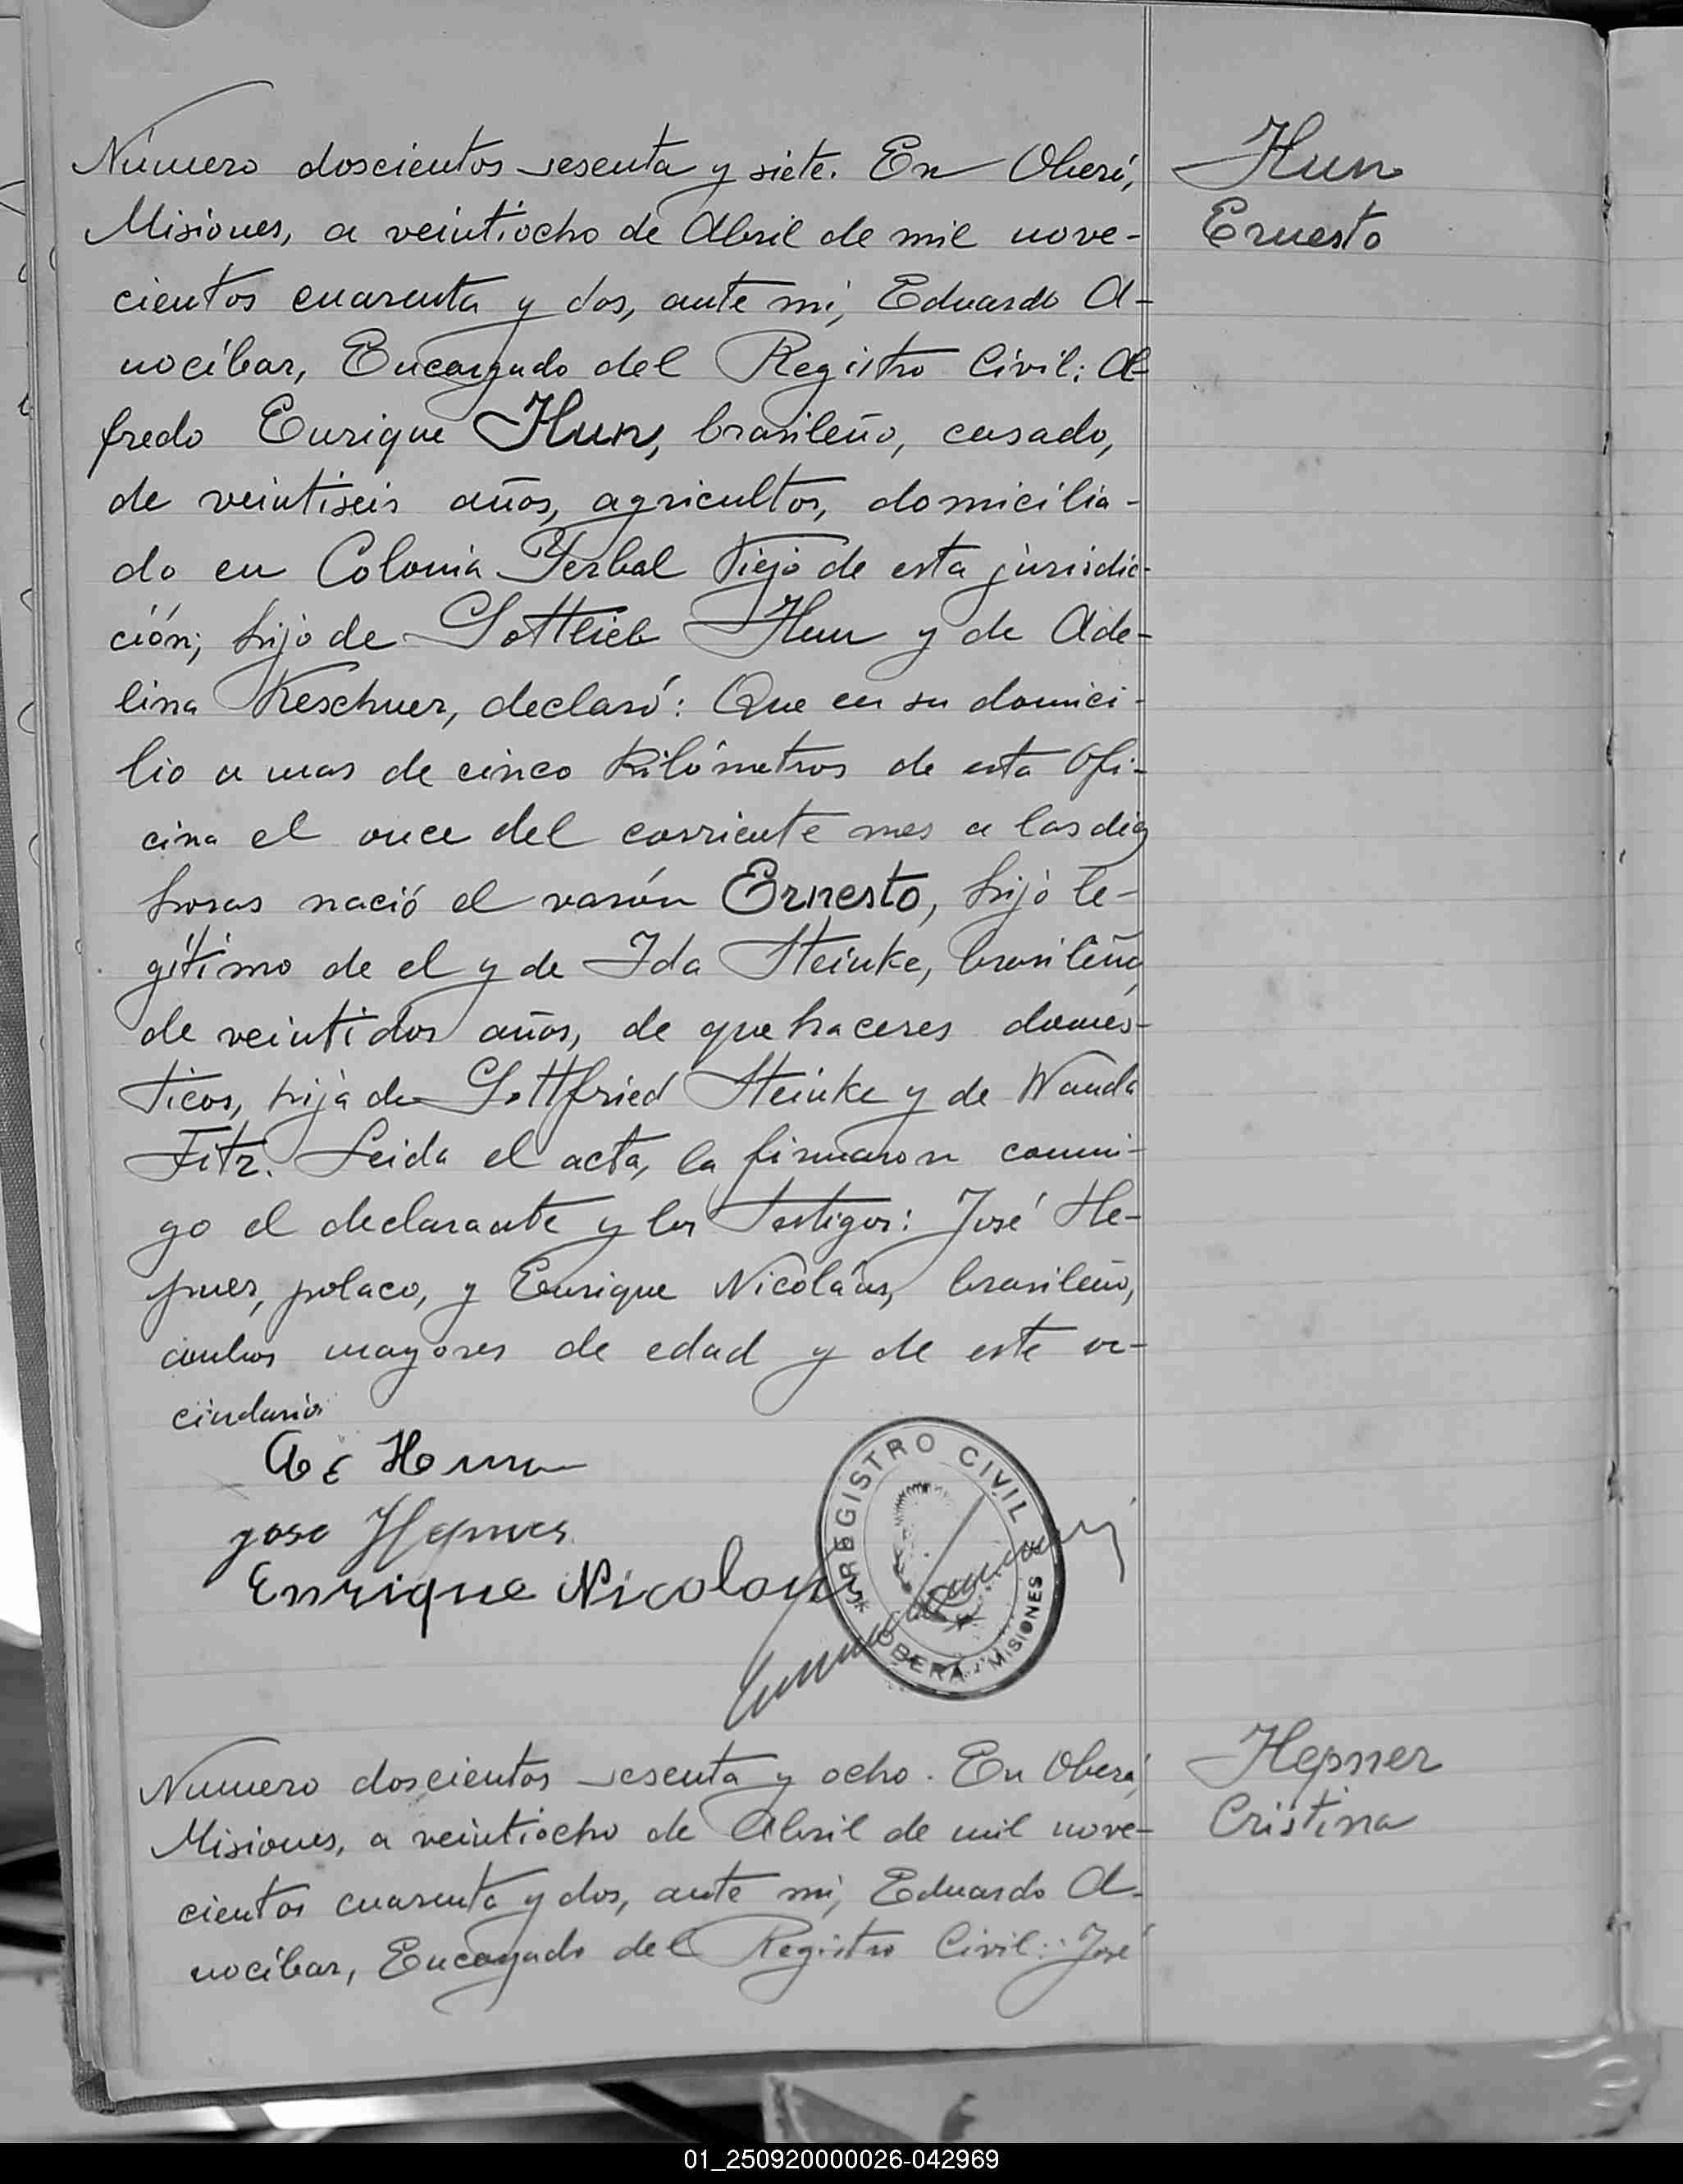 Número doscientos sesenta y siete. En Oberá,
Misiones, a veintiocho de Abril de mil nove-
cientos cuarenta y dos, ante mi, Eduardo A-
nocíbar, Encargado del Registro Civil: Al-
fredo Enrique Hun, brasileño, casado,
de veintiseis años, agricultor, domicilia-
do en Colonia Yerbal Viejo de esta jurisdic-
ción; hijo de Gottlieb Hun y de Ade-
lina Keschner, declaró: Que en su domici-
lio a mas de cinco kilómetros de esta Ofi-
cina el once del corriente mes a las diez
horas nació el varón Ernesto, hijo le-
gítimo de el y de Ida Steinke, brasileña,
de veintidos años, de quehaceres domés-
ticos, hija de Gottfried Steinke y de Wanda
Fitz. Leida el acta, la firmaron conmi-
go el declarante y los testigos: José He-
pner, polaco, y Enrique Nicoláus, brasileño,
ambos mayores de edad y de este ve-
cindario
A E Hun
jose Hepner
Enrique Nicolaus
REGISTRO CIVIL
OBERÁ MISIONES
Hun
Ernesto
Numero doscientos sesenta y ocho. En Oberá,
Misiones, a veintiocho de Abril de mil nove-
cientos cuarenta y dos, ante mi, Eduardo A-
nocíbar, Encargado del Registro Civil: José
Hepner
Cristina
01_250920000026-042969